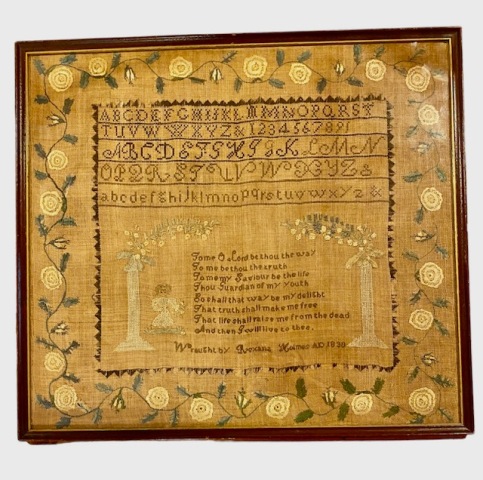 ABCDEFGHIJKLMNOPQRST
TUVWXYZ&1234567891
ABCDEFGHIJKLMN
OPQRSTUVWXYZ&
abcdefghijklmnopqrstuvwxyz&
To me O Lord be thou the way
To me be thou the truth
To me my Saviour be the life
Thou Guardian of my youth
So shall that way be my delight
That truth shall make me free
That life shall raise me from the dead
And then I will live to thee.
Wrought by Roxana Holmes AD 1830